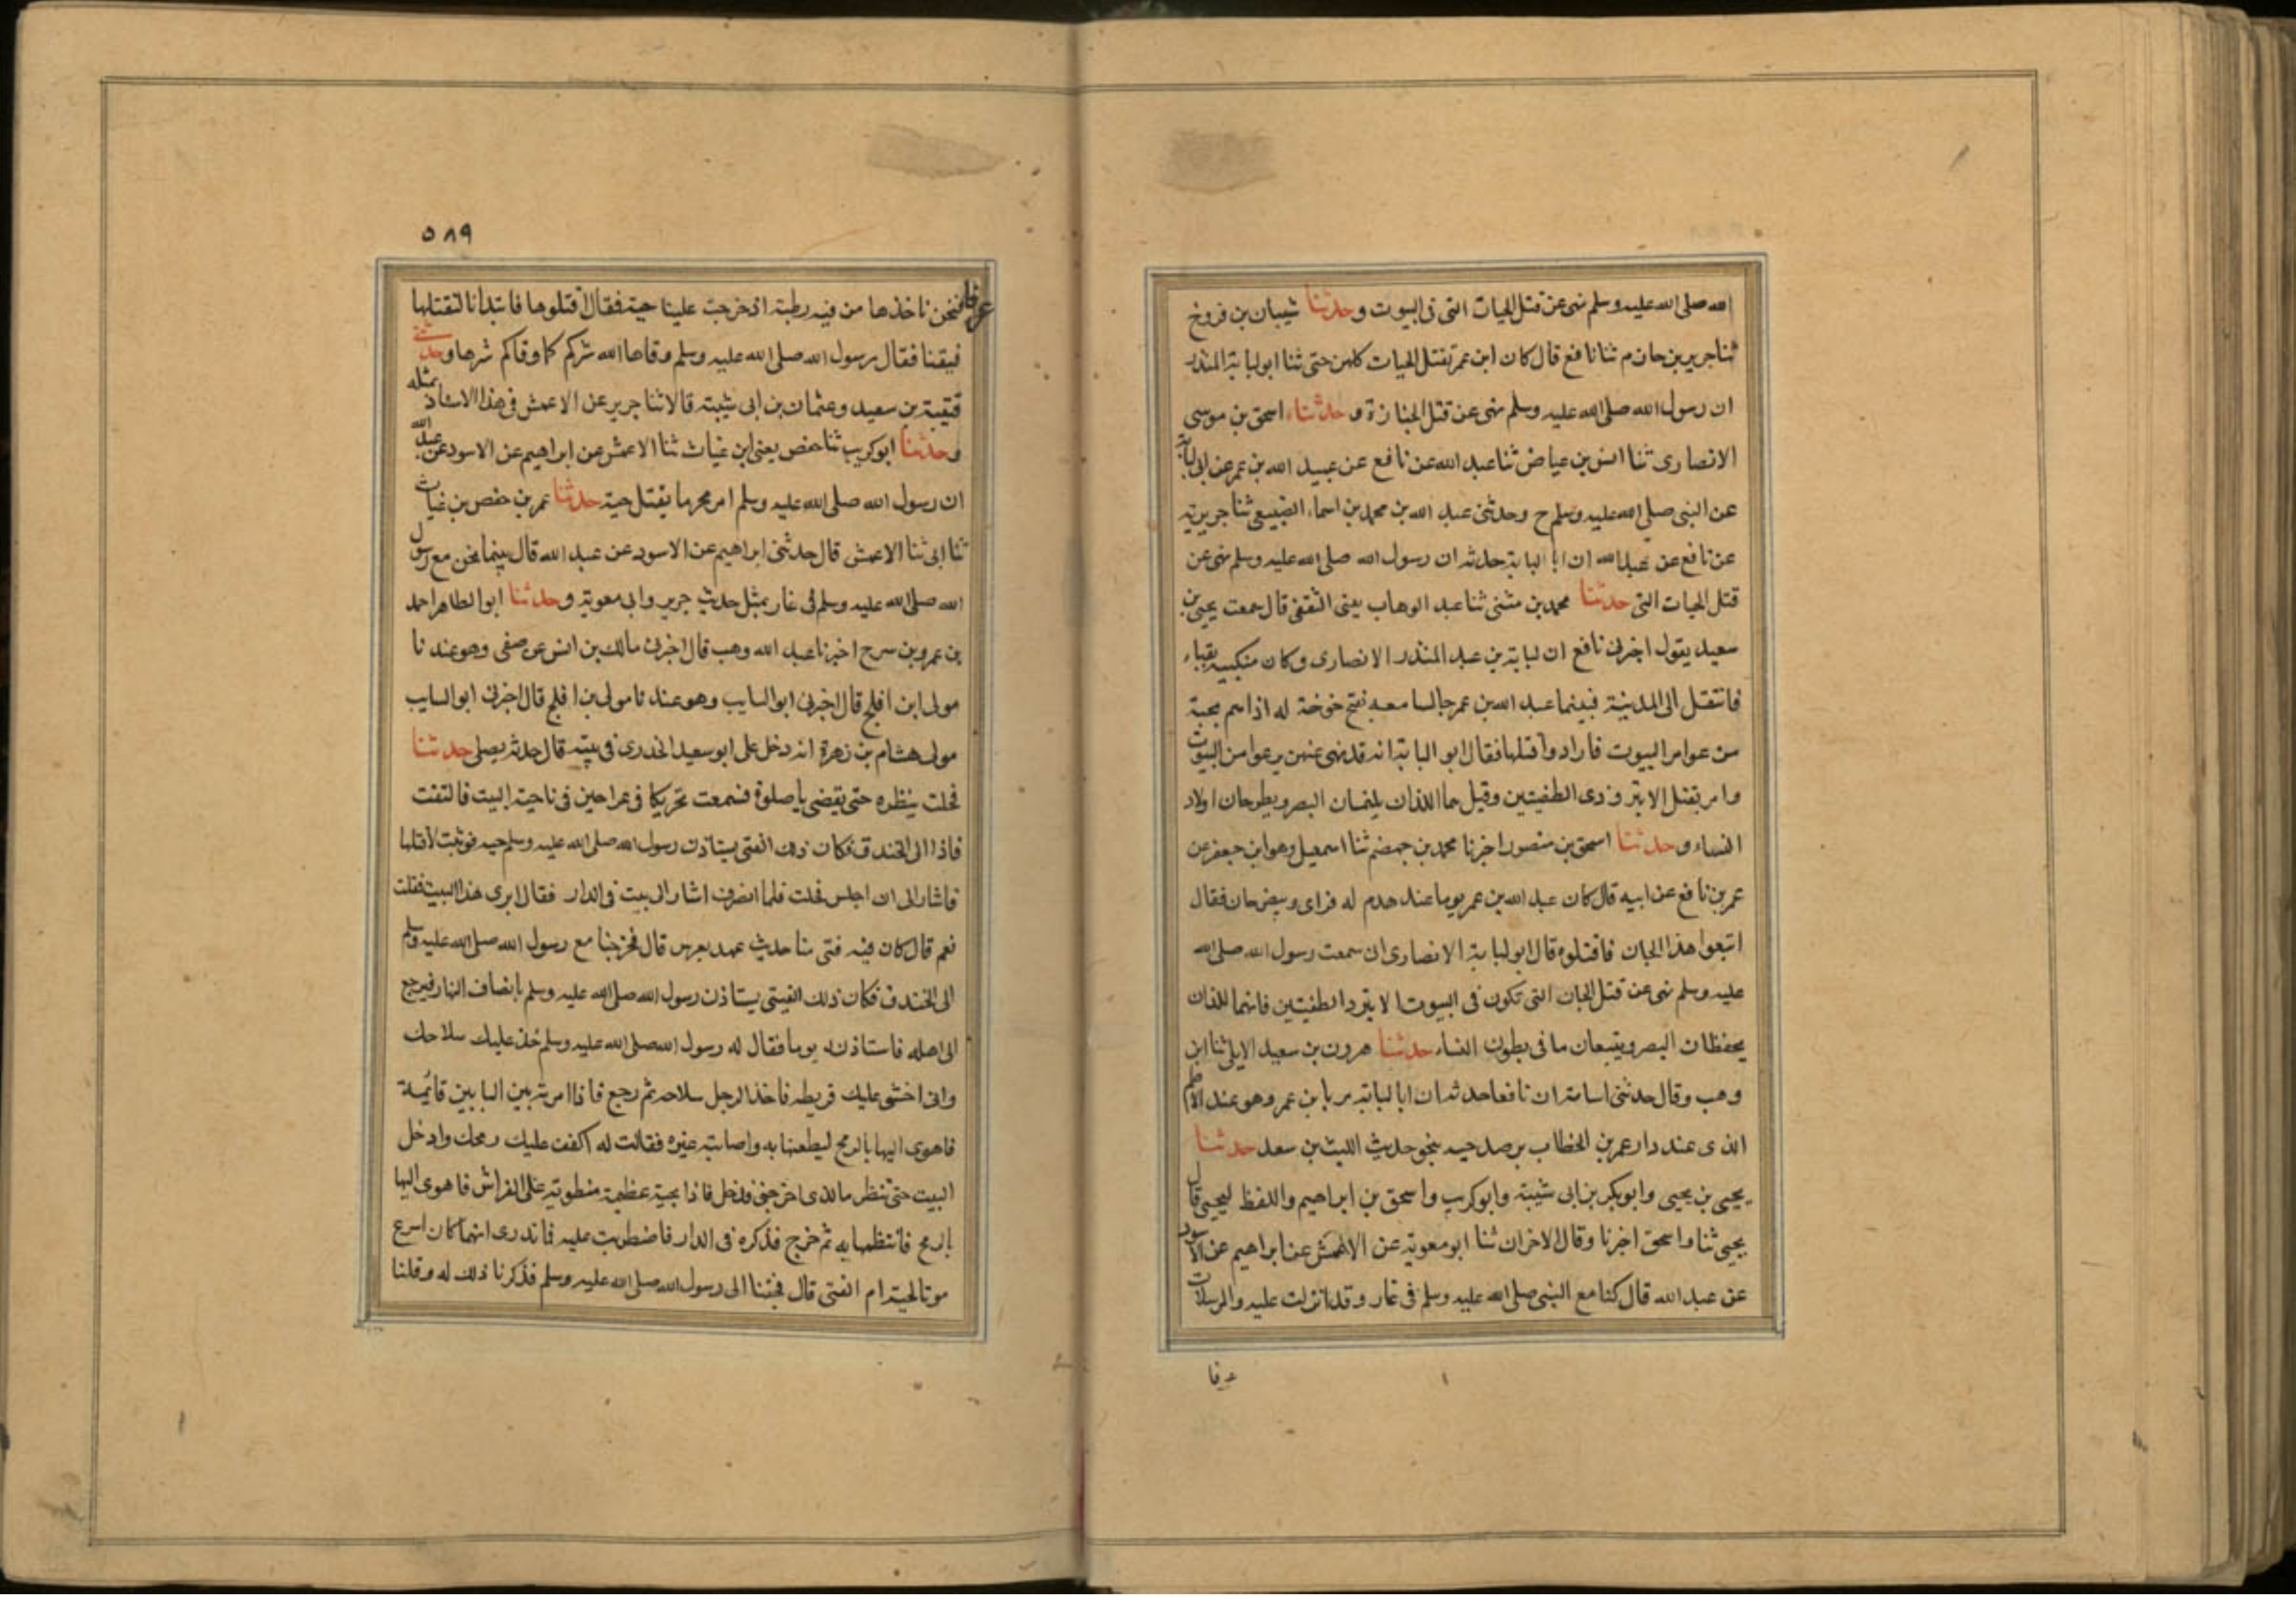 الله صلى الله عليه وسلم نهى عن قتل الحيات التى فى البيوت وحدثنا شيبان بن فروخ
ثنا جرير بن حازم ثنا نافع قال كان ابن عمر يقتل الحيات كلهن حتى ثنا ابو لبابة المنذر
ان رسول الله صلى الله عليه وسلم نهى عن قتل الجنازة وحدثناء اسحق بن موسى
الانصارى ثنا انس بن عياض ثنا عبد الله عن نافع عن عبيد الله بن عمر عن ابى لبابة
عن النبى صلى الله عليه وسلم ح وحدثنى عبد الله بن محمد بن اسماء الضبيعى ثنا جريرية
عن نافع عن عبد الله ان ابا البابة حدثه ان رسول الله صلى الله عليه وسلم نهى عن
قتل الحيات التى حدثنا محمد بن مثنى ثنا عبد الوهاب يعنى الثقفى قال سمعت يحيى بن
سعيد يقول اخبرنى نافع ان لبابة بن عبد المنذر الانصارى وكان منكبيه بقباء
فانتقل الى المدينة فبينما عبد الله بن عمر جالسا معه نفتح خوخة له اذا هم بحية
من عوامر البيوت فاراد وا قتلها فقال ابو البابة انه قد نهى عنهن يرعوامن البيوت
وامر بقتل الابتر وذى الطفيتين وقيل هما اللذان يلتمسان البصر ويطرحان اولاد
النساء وحدثنا اسحق بن منصور اخبرنا محمد بن جهضم ثنا اسمعيل وهو ابن جعفر عن
عمر بن نافع عن ابيه قال كان عبد الله بن عمر يوما عند هدم له فراى وبيض جان فقال
اتبعوا هذا الجان فاقتلوه قال ابو لبابة الانصارى انى سمعت رسول الله صلى الله
عليه وسلم نهى عن قتل الجان التى تكون فى البيوت الا بتر ذا لطفيتين فانهما للذان
يحفظان البصر ويتبعان ما فى بطون النساء حدثنا هرون بن سعيد الايلى ثنا ابن
وهب وقال حدثنى اسامة ان نافعا حدثه ان ابا لبابة مر بابن عمر وهو عند الاطم
الذى عند دار عمر بن الخطاب يرصد حيه بنحو حديث الليث بن سعد حدثنا
يحيى بن يحيى وابو بكر بن ابى شيبة وابو كريب واسحق بن ابراهيم واللفظ ليحيى قال
يحيى ثنا واسحق اخبرنا وقال الاخران ثنا ابو معوية عن الاعمش عن ابراهيم عن الاسود
عن عبد الله قال كنا مع النبى صلى الله عليه وسلم فى غار وقد انزلت عليه والمرسلات
عرفا
٥٨٩
عرفا فنحن ناخذها من فيه رطبة اذ خرجت علينا حية فقال اقتلوها فابتدانا لنقتلها
فبقنا فقال رسول الله صلى الله عليه وسلم وقاها الله شركم كما وقاكم شرها وحدثنى
قتيبة بن سعيد وعثمان بن ابى شيبة قالا ثنا جرير عن الاعمش فى هذا الاسناد بمثله
وحدثنا ابو كريب ثنا حفص يعنى ابن غياث ثنا الاعمش عن ابراهيم عن الاسود عن عبد الله
ان رسول الله صلى الله عليه وسلم امر محرما بقتل حية حدثنا عمر بن حفص بن غياث
ثنا ابى ثنا الاعمش قال حدثنى ابراهيم عن الاسود عن عبد الله قال بينما نحن مع رسول
الله صلى الله عليه وسلم فى غار بمثل حديث جرير وابى معوية وحدثنا ابو الطاهر احمد
بن عمرو بن سرح اخبرنا عبد الله وهب قال اخبرنى مالك بن انس عن صفى وهو عند نا
مولى ابن افلح قال اخبرنى ابو السايب وهو عند نا مولى بن افلح قال اخبرنى ابو السايب
مولى هشام بن زهرة انه دخل على ابو سعيد الخدرى فى بيته قال حدثه يصلى حدثنا
فجلت ينظره حتى يقضى يا صلوة فسمعت تحريكا فى عراجين فى ناحية البيت فالتفت
فاذا الى الخندق فكان ذلك الفتى يستاذن رسول الله صلى الله عليه وسلم حيه فوثبت لاقتلها
فاشار الى ان اجلس فجلت فلما انصرف اشار الى بيت فى الدار فقال ابرى هذا البيت فقلت
نعم قال كان فيه فتى منا حديث عهد بعرس قال فخرجنا مع رسول الله صلى الله عليه وسلم
الى الخندق فكان ذلك الفيتى يستاذن رسول الله صلى الله عليه وسلم بانصاف النهار فيرجع
الى اهله فاستاذنه يوما فقال له رسول الله صلى الله عليه وسلم خذ عليك سلاحك
وانى اخشى عليك قريطه فاخذ الرجل سلاحه ثم رجع فاذا امرته بين البابين قائمة
فاهوى اليها بالرمح ليطعنها به واصابته غيره فقالت له اكفف عليك رمحك وادخل
البيت حتى تنظر ما لذى اخرجنى فدخل فاذا بحية عظيمة منطوية على الفراش فاهوى اليها
بالرمح فانتظمها به ثم خرج فذكره فى الدار فاضطربت عليه فما ندرى ايهما كان اسرع
موتا لحية ام الفتى قال فجئنا الى رسول الله صلى الله عليه وسلم فذكرنا ذلك له وقلنا